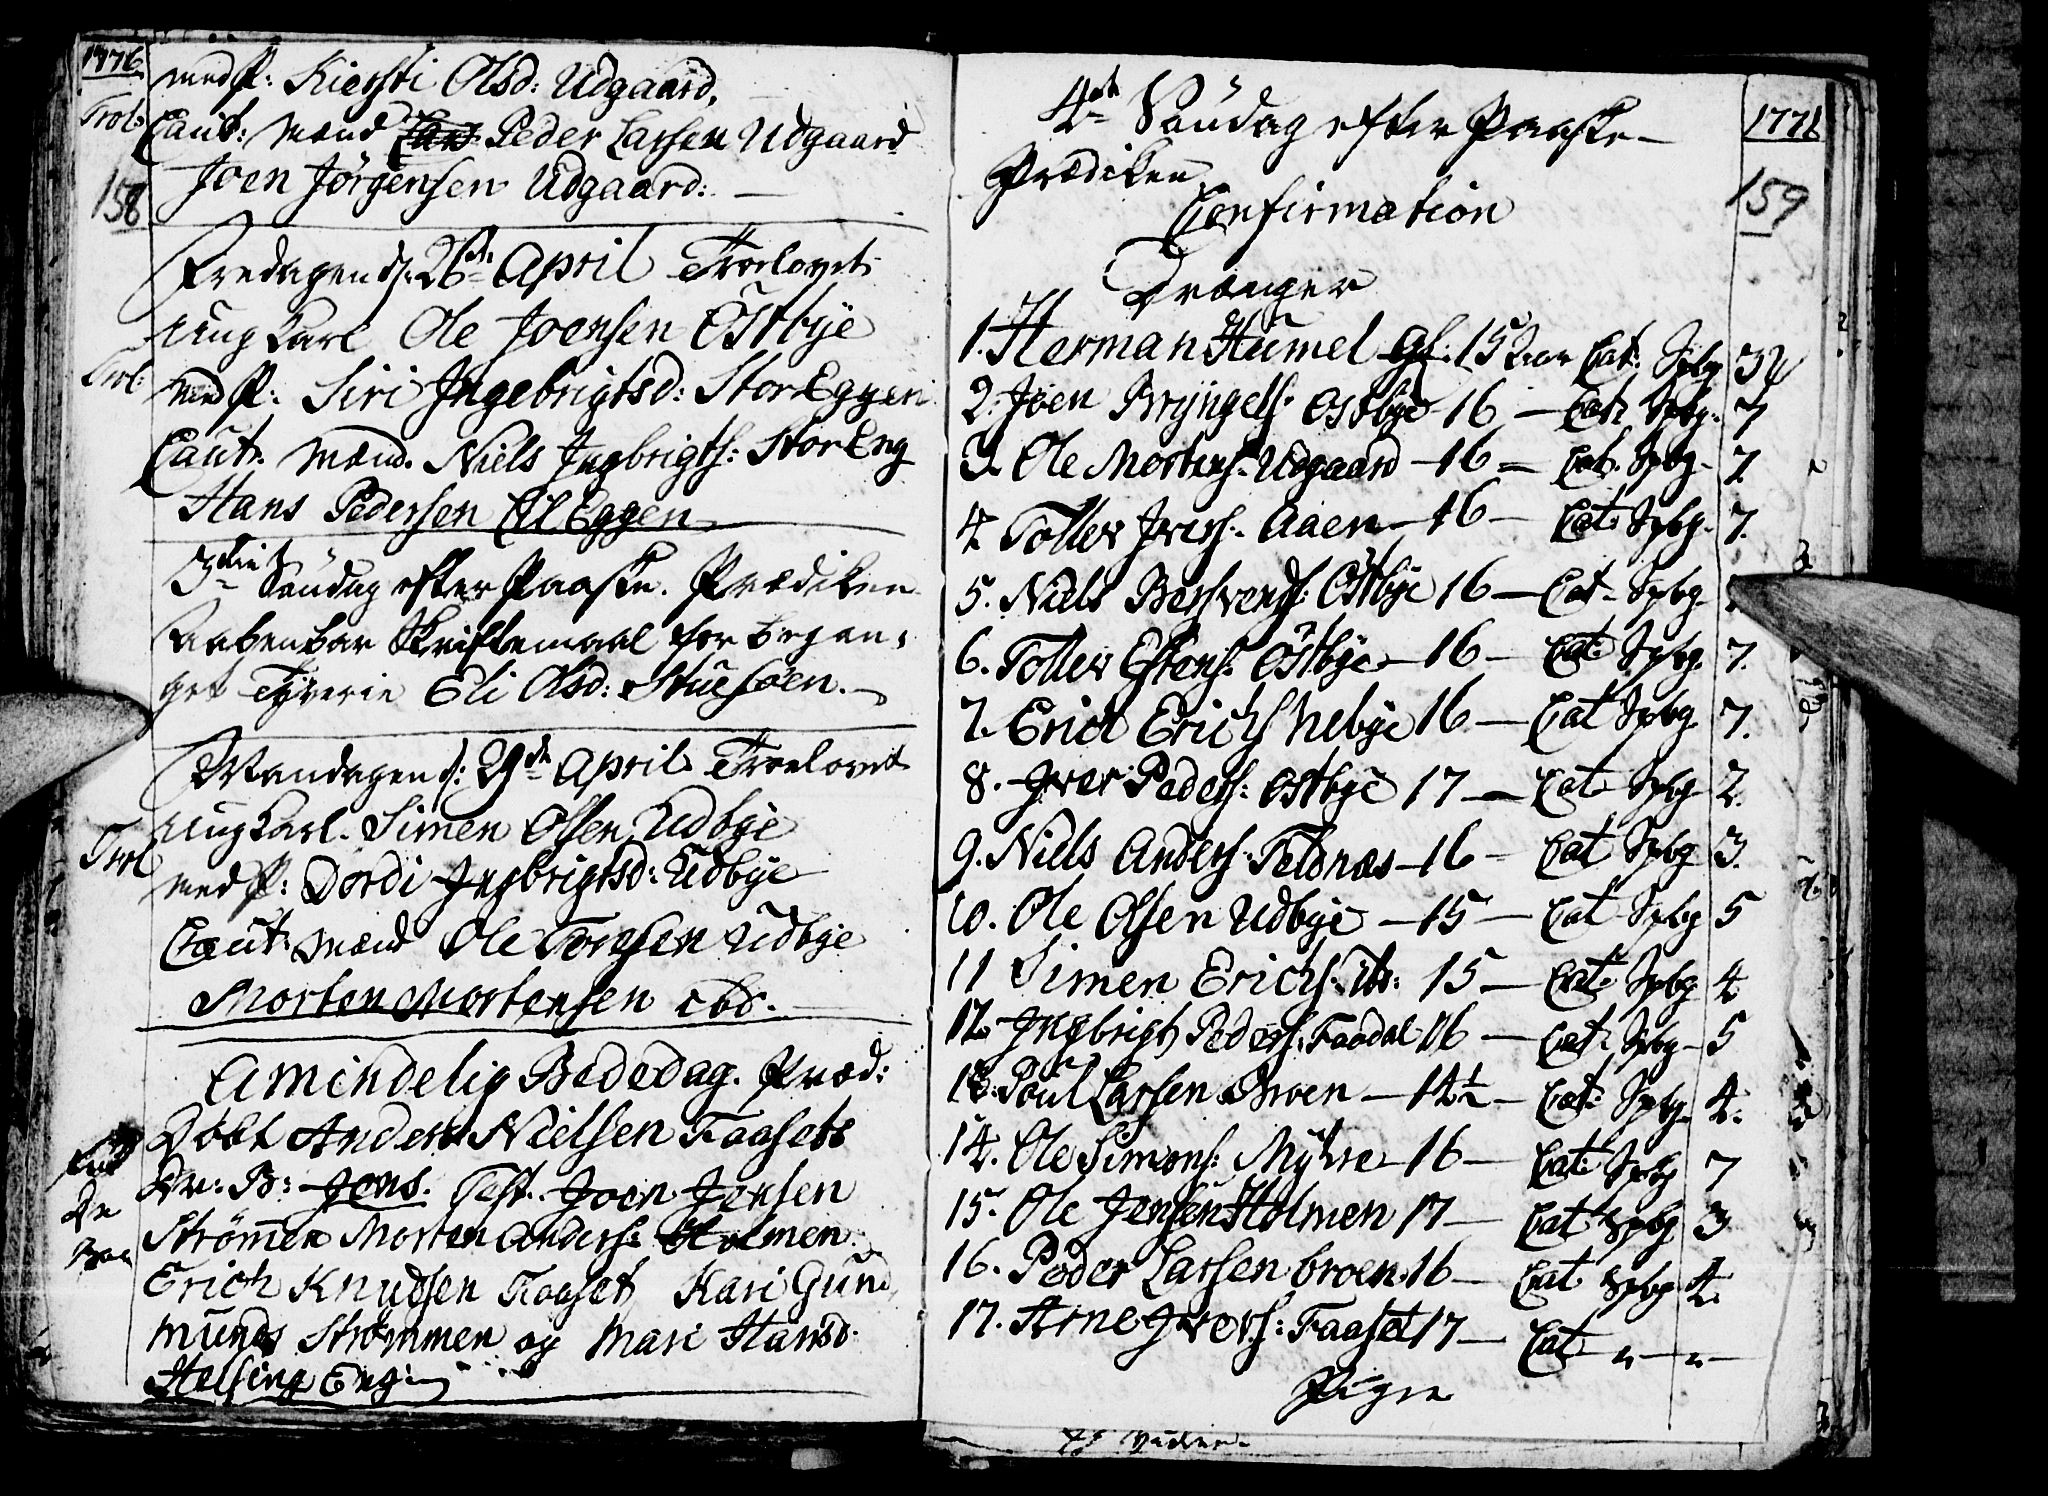 1776
med P: Kiersti Olsd: Udgaard,
Trol:
Caut: Mænd Peder Larsen Udgaard
158
Joen Jörgensen Udgaard:
Fredagen d. 26de April Troelovet
ungkarl Ole Joensen Östbye
Trol:
med P: Siri Ingebrigtsd: StorEggen
Caut: Mænd. Niels Ingbrigts: StorEng
Hans Pedersen Eggen
3die Söndag efter Paaske. Prædiken
Aabenbar Skriftemaal for began-
get Tyverie Eli Olsd: Stuesöen.
Mandagen d: 29de April Troelovet
ungkarl. Simen Olsen Udbye
Trol
med P: Dordi Ingbrigtsd: Udbye
Caut: Mænd Ole Torgsen Udbye
Morten Mortensen ibd.
Almindelig Bededag. Præd:
Döbt Anders Nielsen Faasets
Dr: B: Jens. Test. Joen Jensen
Strömen Morten Anders: Holmen
Erich Knudsen Faaset Kari Gund
munds Strömmen og Mari Hansd:
HelsingEng:
4de Söndag efter Paaske
Prædiken
1776
159
Confirmation
Drænger
1. Herman Humel gl: 15 Aar Cat: Spbg
2. Joen Bryngels: Ostbye 16 — Cat: Spbg. 7
3. Ole Mortens: Udgaard — 16 — Cat. Spbg — 7.
4. Toller Ivers: Aaen — 16 — Cat: Spbg. 7.
5. Niels Bersvends: Östbye 16 — Cat — Spbg.
6. Toller Estens: Östbye — 16 — Cat: Spbg. 7.
7. Erich Erichs Nebye 16 — Cat Spbg 7.
8. Iver Peders: Ostbye 17 — Cat Spbg 2.
9. Niels Anders: Teldnæs — 16 — Cat Spbg 3.
10. Ole Olsen Udbye — 15 — Cat Spbg 5
11 Simen Erichs: ib: 15 — Cat: Spbg 4
12 Ingbrigt Peders: Faadal 16 — Cat: Spbg — 5
13. Poul Larsen Broen — 14½ — Cat: Spbg 4.
14. Ole Simons: Myhre — 16 — Cat: Spbg 7
15. Ole Jensen Holmen 17 — Cat Spbg 3
16. Peder Larsen broen 16 — Cat Spbg 4.
17. Arne Ivers: Faaset 17 — Cat — " — " —
Piger